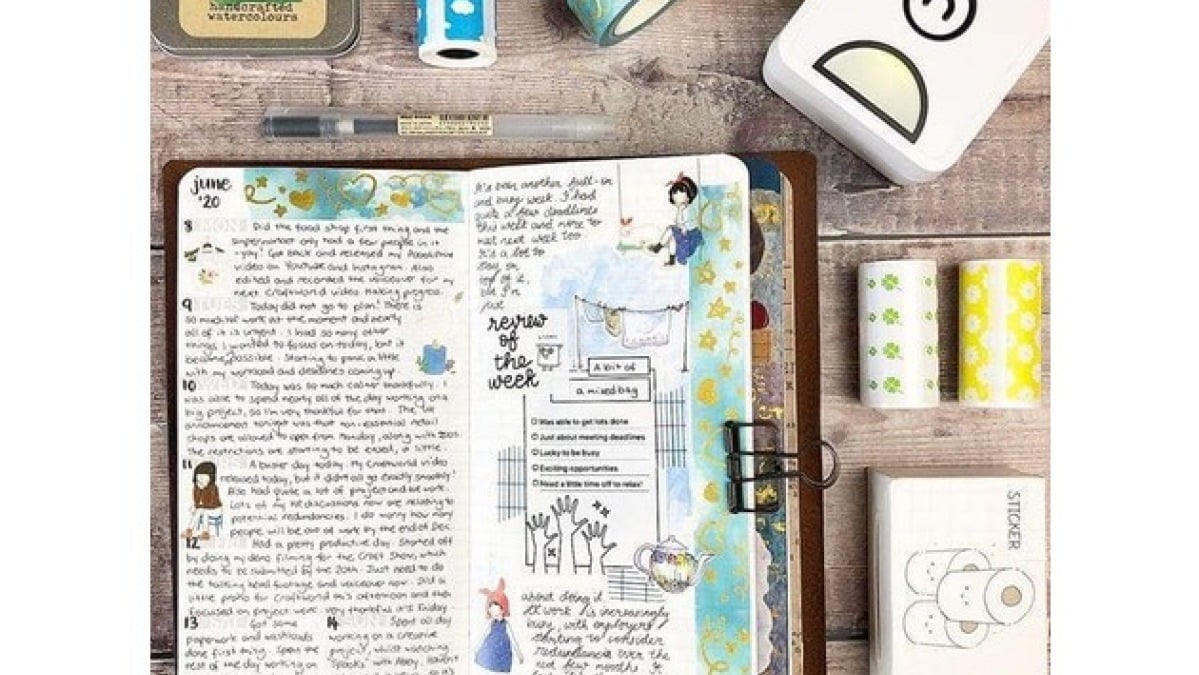 handcrafted
watercolours
june
'20
8 MON Did the food shop first thing and the
supermarket only had a few people in it
- yay! Got back and released my
video on YouTube and Instagram. Also
edited and recorded the voiceover for my
next Craftworld video. Making progress.
9 TUES Today did not go to plan! There is
so much work at the moment and nearly
all of it is urgent. I had so many other
things I wanted to focus on today, but it
became possible. Starting to panic a little
with my workload and deadlines coming up.
10 WED Today was so much calmer thankfully. I
was able to spend nearly all of the day working on a
big project, so I'm very thankful for that. The
announcement tonight was that non-essential retail
shops are allowed to open from Monday, along with zoos.
The restrictions are starting to be eased, a little.
11 A busier day today. My Craftworld video
released today, but it didn't all go exactly smoothly!
Also had quite a lot of project and work.
Lots of my discussions now are relating to
potential redundancies. I do worry how many
people will be out of work by the end of Dec.
12 Had a pretty productive day. Started off
by doing my demo filming for the Craft Show, which
needs to be submitted by the 20th. Just need to do
the talking head footage and voiceover now. Did a
little promo for Craftworld this afternoon and then
focused on project work. Very thankful it's Friday
13 SAT Got some
paperwork and washloads
done first thing. Spent the
rest of the day working on
14 SUN Spent all day
working on a creative
project, whilst watching
'Spooks' with Abby. Haven't
It's been another full-on
and busy week. I had
quite a few deadlines
this week and more to
met next week too.
It's a lot to
stay on
top of it,
but I'm
just
review
of
the
week
A bit of
a mixed bag
Was able to get lots done
Just about meeting deadlines
Lucky to be busy
Exciting opportunities
Need a little time off to relax!
about doing it.
work is increasingly
busy, with employers
starting to consider
redundancies over the
next few months. It
STICKER